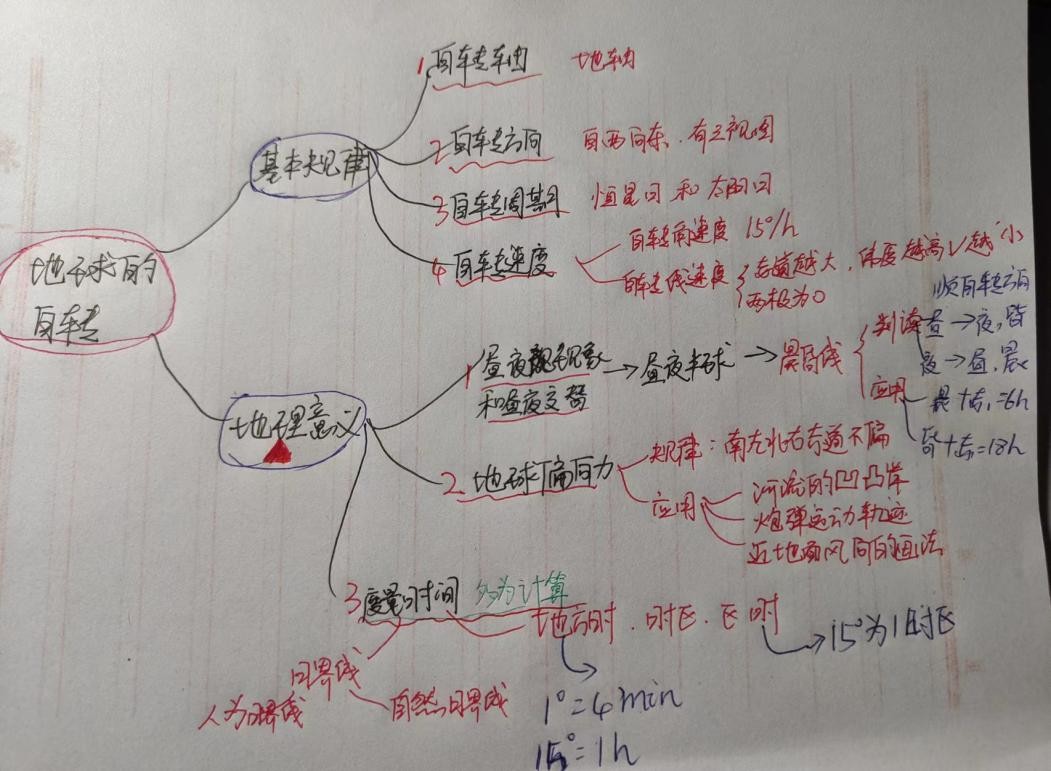 地球的
自转
基本规律
1 自转轴 地轴
2 自转方向 自西向东、有三视图
3 自转周期 恒星日 和 太阳日
4 自转速度
自转角速度 15°/h
自转线速度
赤道越大，纬度越高V越小
两极为0
地理意义
1 昼夜现象
和昼夜交替
→昼夜半球
→晨昏线
判读
顺自转方向
昼→夜，昏
夜→昼，晨
应用
晨+赤，=6h
昏+赤=18h
2 地球偏向力
规律：南左北右赤道不偏
应用
河流的凹凸岸
炮弹运动轨迹
近地面风向的画法
3 度量时间 多为计算
地方时、时区、区时
→15°为1时区
1°=4min
15°=1h
日界线
人为日界线
自然日界线